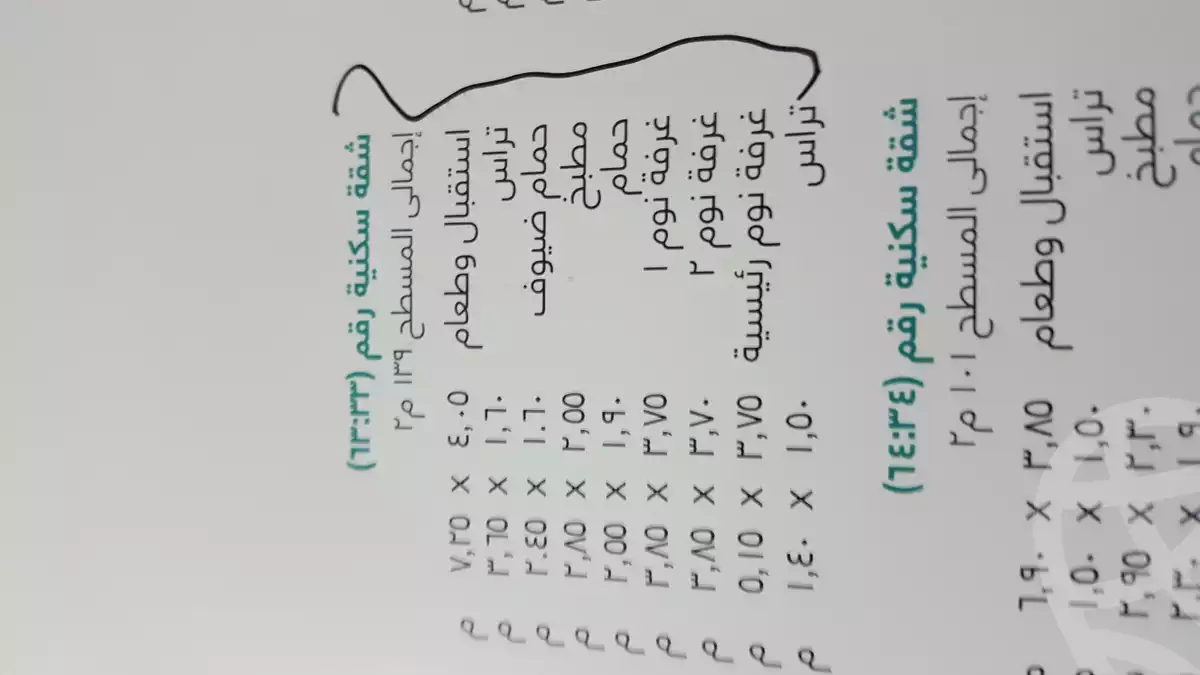 شقة سكنية رقم (٣٣:٦٣)
إجمالى المسطح ١٣٩ م٢
استقبال وطعام ٤,٠٥ x ٧,٢٥ م
تراس ١,٦٠ x ٣,٦٥ م
حمام ضيوف ١.٦٠ x ٢.٤٥ م
مطبخ ٢,٥٥ x ٢,٨٥ م
حمام ١,٩٠ x ٢,٥٥ م
غرفة نوم ١ ٣,٧٥ x ٣,٨٥ م
غرفة نوم ٢ ٣,٧٠ x ٣,٨٥ م
غرفة نوم رئيسية ٣,٧٥ x ٥,١٥ م
تراس ١,٥٠ x ١,٤٠ م
شقة سكنية رقم (٣٤:٦٤)
إجمالى المسطح ١٠١ م٢
استقبال وطعام ٣,٨٥ x ٦,٩٠ م
تراس ١,٥٠ x ١,٥٠
مطبخ ٢,٣٠ x ٢,٩٥
حمام ١,٩ x ٢,٢٠